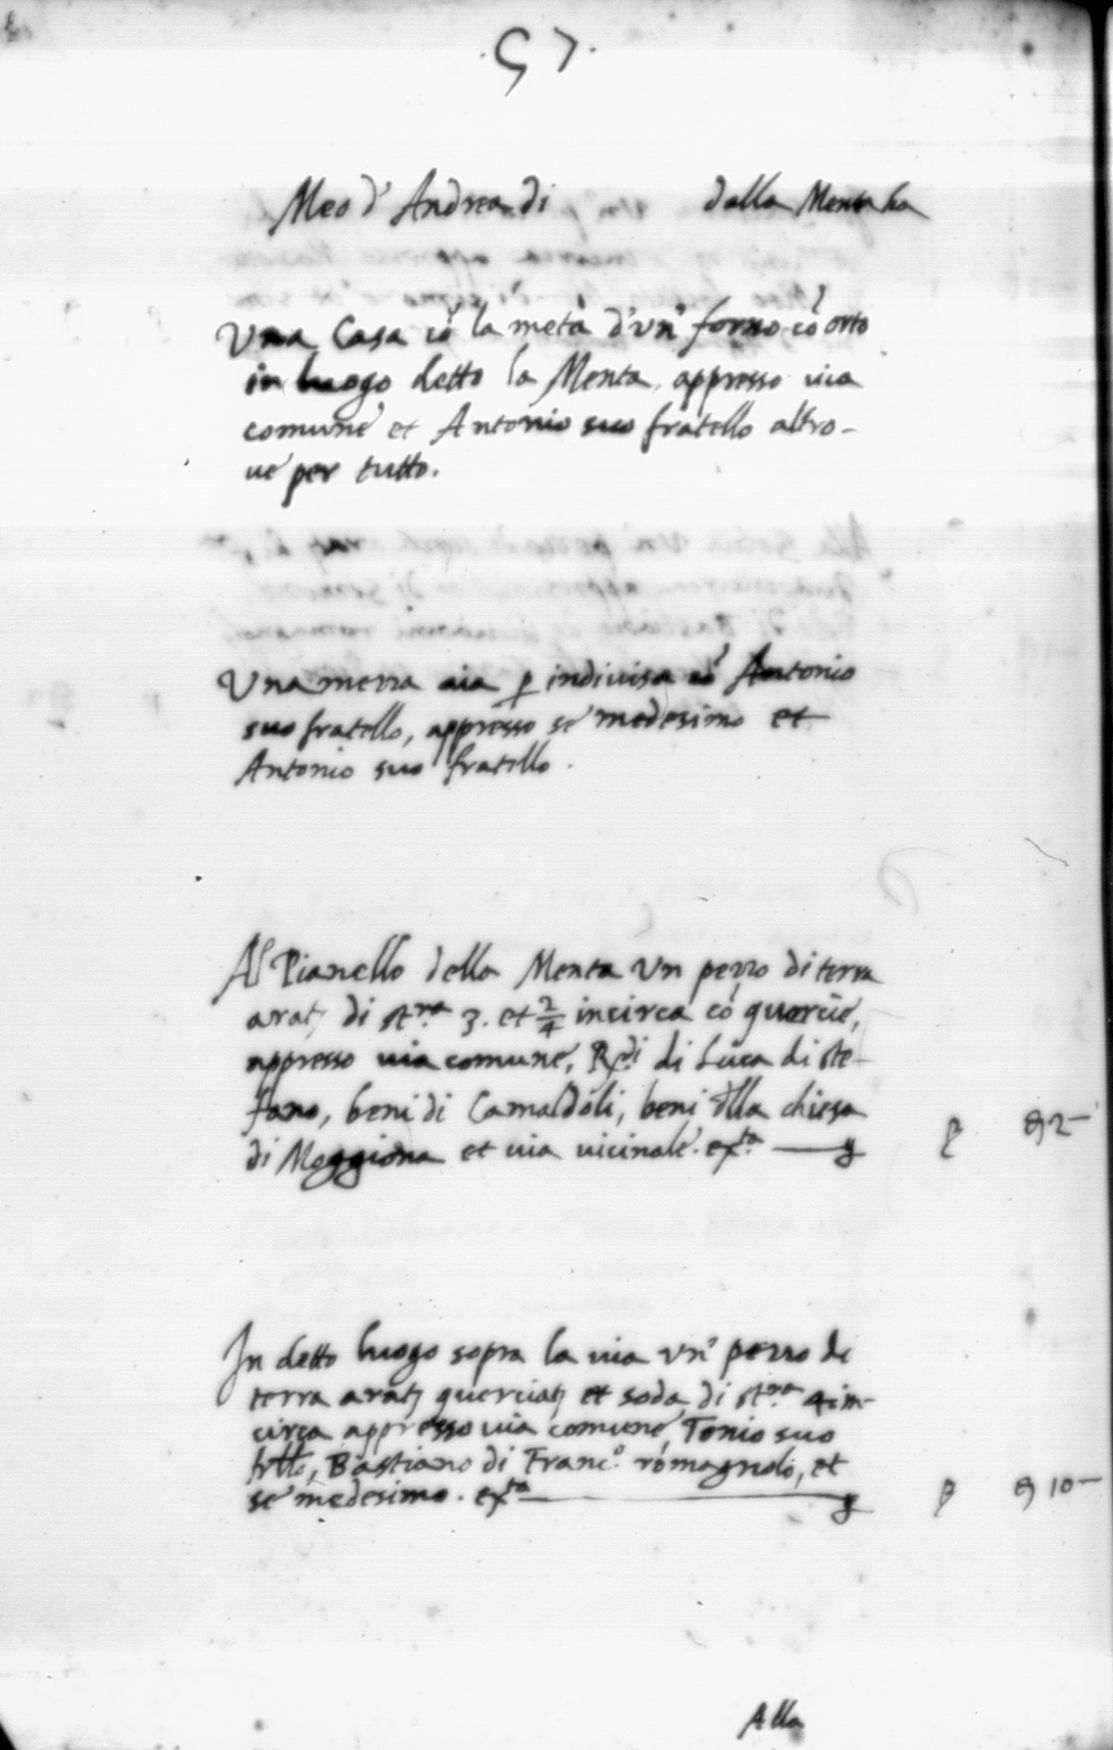 .57.
Meo d' Andrea di dalla Menta
Una Casa cō la metà d'un' forno cō orto
in luogo detto la Menta, appresso via
comune et Antonio suo fratello altro-
ve per tutto.
Una mezza aia p indivisa cō Antonio
suo fratello, appresso se medesimo et
Antonio suo fratello.
Al Pianello della Menta un pezzo di terra
arat. di st.ra 3. et 2/4 incirca cō quercie,
appresso via comune, R.di di Luca di Ste-
fano, beni di Camaldoli, beni dlla chiesa
di Moggiona et via vicinale. ex.ta
In detto luogo sopra la via un' pezzo di
terra arat. querciat. et soda, di st.ra 4 in-
circa appresso via comune, Tonio suo
frtllo, Bastiano di Franc.o romagnolo, et
se medesimo. ex.ta
Alla